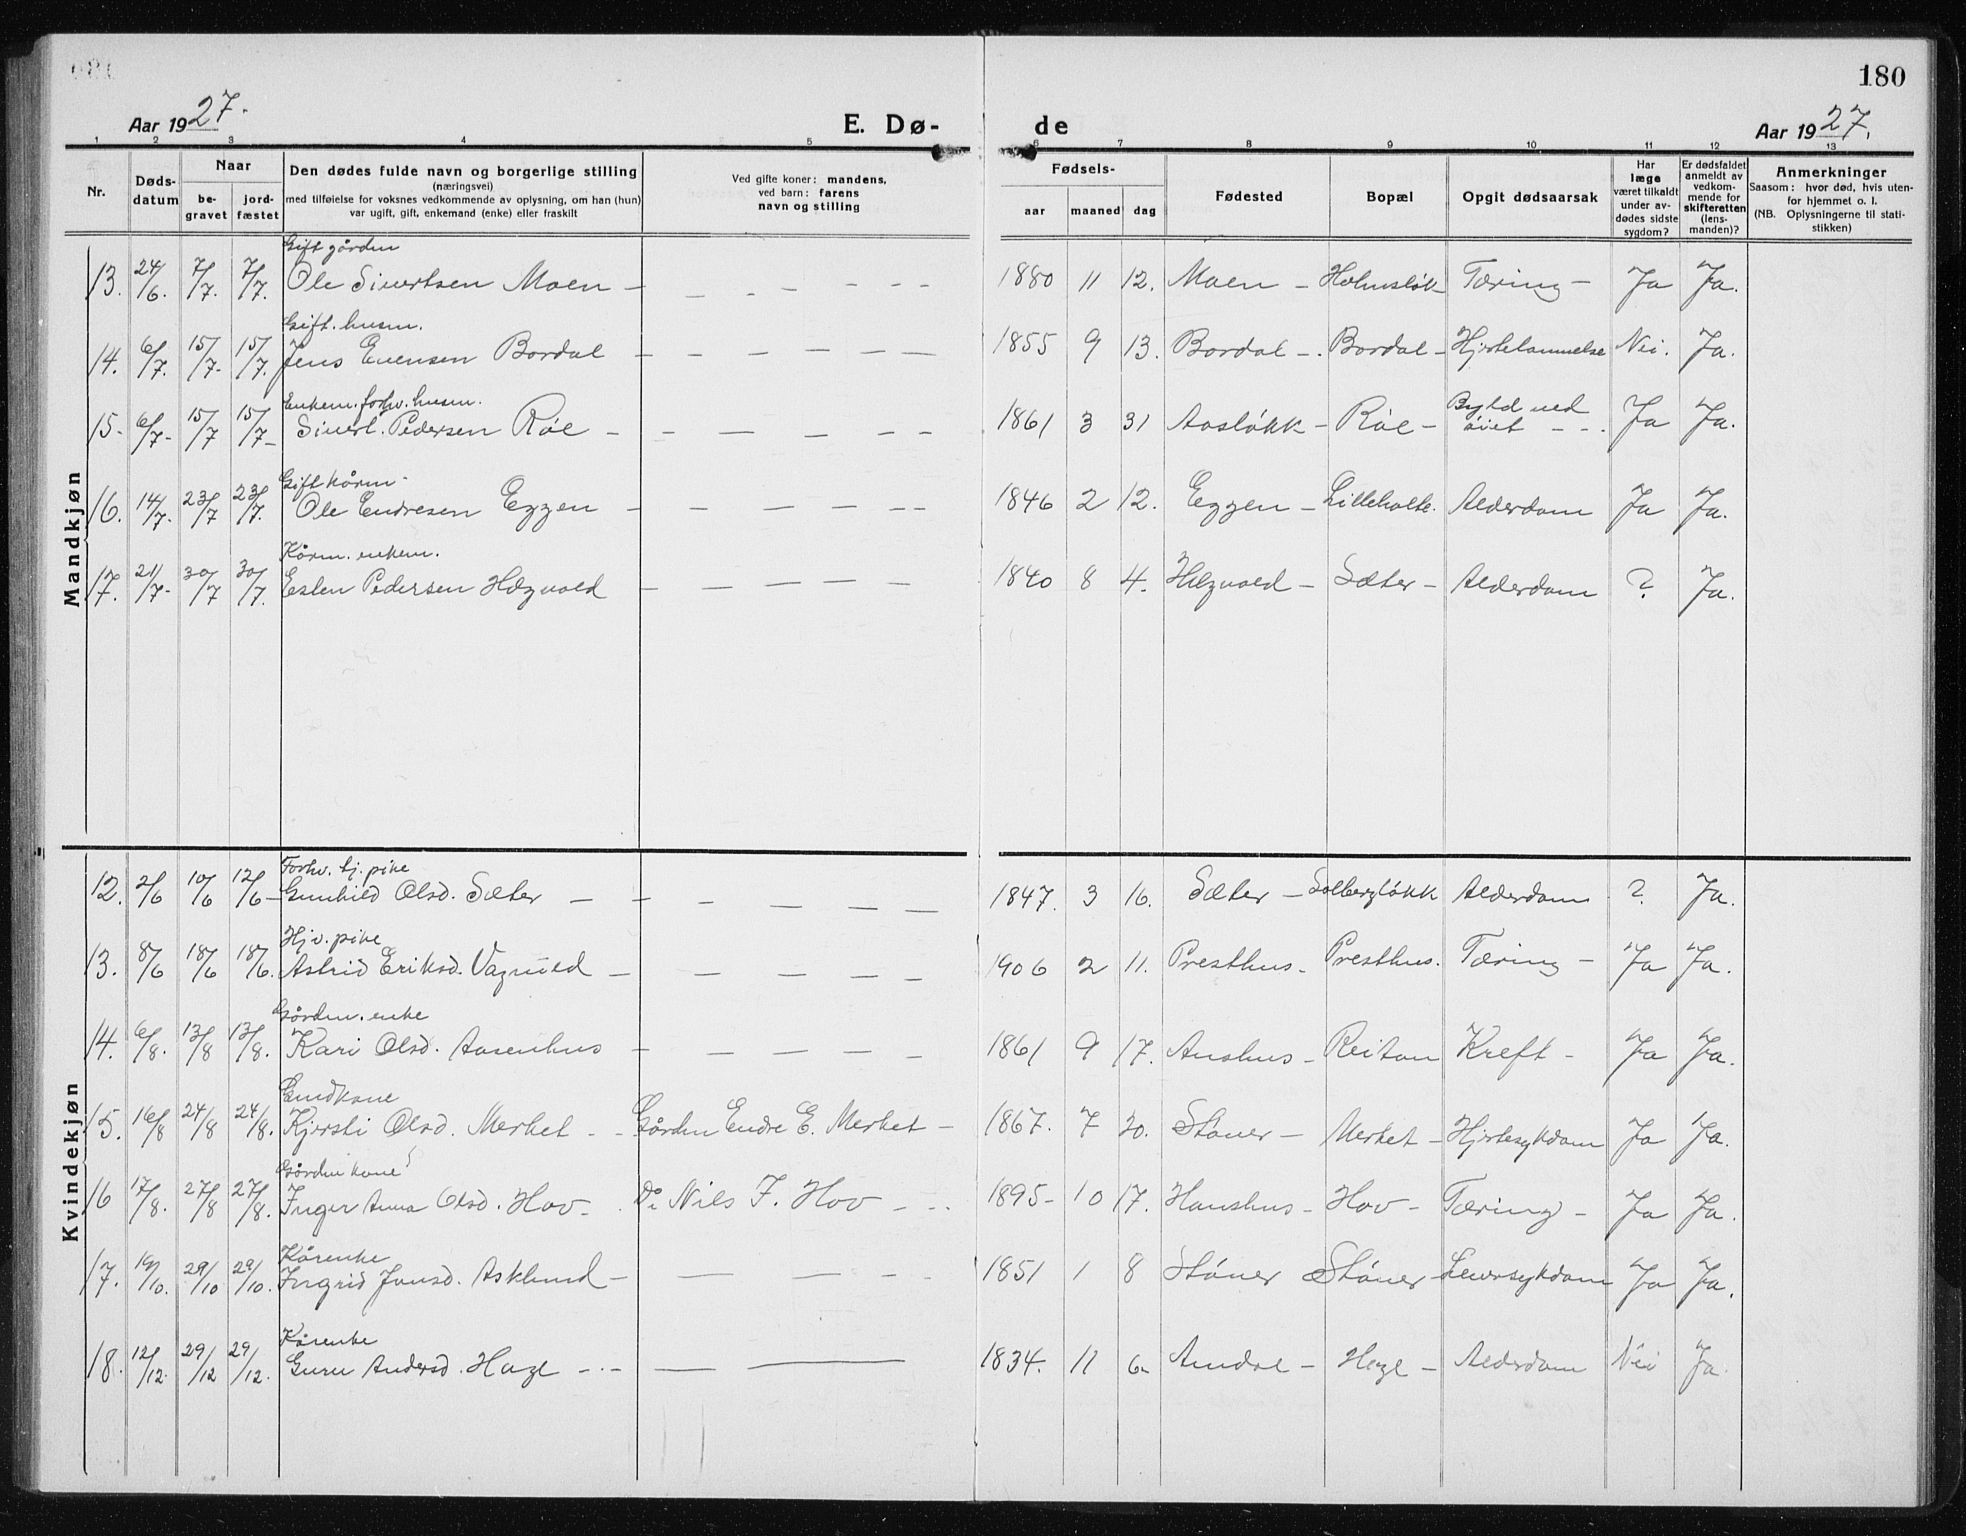 180
Aar 1927. E. Dø- de Aar 1927.
1 2 3 4 5 6 7 8 9 10 11 12 13
Nr. Døds-datum Naar be-gravet jord-fæstet Den dødes fulde navn og borgerlige stilling (næringsvei) med tilføielse for voksnes vedkommende av oplysning, om han (hun) var ugift, gift, enkemand (enke) eller fraskilt Ved gifte koner: mandens, ved barn: farens navn og stilling Fødsels- aar maaned dag Fødested Bopæl Opgit dødsaarsak Har læge været tilkaldt under av-dødes sidste sygdom? Er dødsfaldet anmeldt av vedkom-mende for skifteretten (lens-manden)? Anmerkninger Saasom: hvor død, hvis uten-for hjemmet o. l. (NB. Oplysningerne til stati-stikken)
Mandkjøn
Gift gårdm
13. 24/6. 7/7. 7/7. Ole Sivertsen Moen – – – – – – 1880 11 12. Moen – Holmsløk Tæring – Ja Ja.
Gift. husm.
14. 6/7. 15/7. 15/7. Jens Evensen Bordal – – – – – – 1855 9 13. Bordal –. Bordal – Hjertelammelse Nei. Ja.
Enkem. forhv. husm.
15- 6/7- 15/7 15/7- Sivert. Pedersen Røe – – – – – – 1861 3 31 Aasløkk – Røe – Byld ved øiet – –. Ja Ja.
Gift kårm-
16. 14/7- 23/7 23/7. Ole Endresen Eggen – – – – – – 1846 2 12. Eggen – Lilleholte. Alderdom Ja Ja.
Kårm. enkem.
17. 21/7- 30/7 30/7. Esten Pedersen Hægvold – – – – – – 1840 8 4. Hægvold – Sæter – Alderdom ? Ja.
Kvindekjøn
Forhv. tj. pike
12. 2/6 10/6 12/6- Gunhild Olsd. Sæter – – – – – – 1847. 3 16. Sæter – Solbergløkk Alderdom ? Ja.
Hjv. pike
13. 8/6 18/6 18/6. Astrid Eriksd. Vagnild – – – – – 1906 2 11. Presthus – Presthus. Tæring – Ja Ja.
Gårdm. enke
14. 6/8. 13/8 13/8. Kari Olsd. Aasenhus – – – – – 1861 9 17. Aushus – Reitan Kreft – Ja Ja.
15. 16/8 24/8 24/8. Kjersti Olsd. Merket – – Gårdm Endre E. Merket – 1867. 7 20. Støver – Merket – Hjertesykdom Ja Ja.
Gårdm kone
16 17/8. 27/8 27/8. Inger Anna Olsd. Hov –. Do Nils J. Hov – – – 1895- 10 17. Haushus – Hov – Tæring – Ja Ja.
Kårenke
17. 19/10. 29/10 29/10. Ingrid Jonsd. Asklund – – – – – 1851 1 8 Støver Støver – Leversykdom Ja Ja.
Kårenke
18. 12/12. 29/12 29/12. Guru Andersd. Hage – – – – – 1834. 11 6- Amdal – Hage – Alderdom Nei Ja.